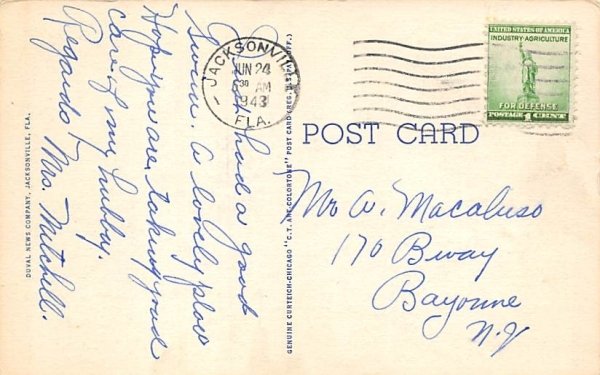 Just had a good
swim. A lovely place
Hope you are taking good
care of my hubby.
Regards Mrs. Mitchell.
DUVAL NEWS COMPANY, JACKSONVILLE, FLA.
GENUINE CURTEICH-CHICAGO "C.T. ART-COLORTONE" POST CARD (REG. U.S. PAT. OFF.)
JACKSONVILLE
JUN 24
30 AM
1943
FLA.
UNITED STATES OF AMERICA
INDUSTRY·AGRICULTURE
FOR DEFENSE
POSTAGE 1 CENT
POST CARD
Mr A. Macaluso
170 Bway
Bayonne
N.J